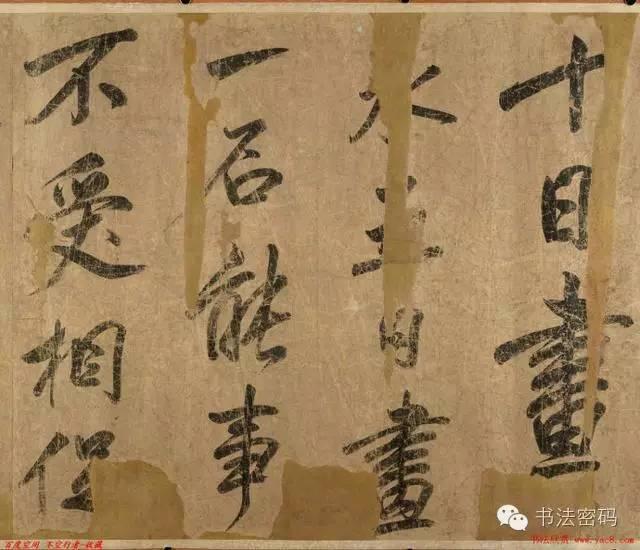 十日畫
水五日畫
一石能事
不受相促
书法密码
百度空间 不空行者-收藏
书法欣赏 www.yac8.com